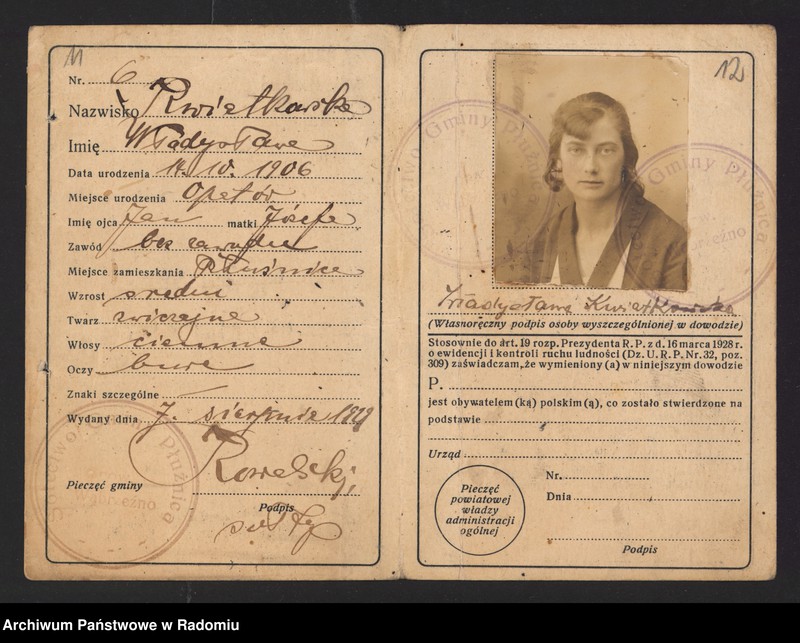 11
Nr. 6
Nazwisko Kwiatkowska
Imię Władysława
Data urodzenia 14. 10. 1906
Miejsce urodzenia Opatów
Imię ojca Jan matki Józefa
Zawód bez zawodu
Miejsce zamieszkania Płużnica
Wzrost średni
Twarz zwyczajna
Włosy ciemne
Oczy bure
Znaki szczególne
Wydany dnia 7. sierpnia 1929
Pieczęć gminy
Podpis
sołtys
Płużnica
12
Gminy Płużnica
Gminy Płużnica
Władysława Kwiatkowska
(Własnoręczny podpis osoby wyszczególnionej w dowodzie)
Stosownie do art. 19 rozp. Prezydenta R. P. z d. 16 marca 1928 r.
o ewidencji i kontroli ruchu ludności (Dz. U. R. P. Nr. 32, poz.
309) zaświadczam, że wymieniony (a) w niniejszym dowodzie
P.
jest obywatelem (ką) polskim (ą), co zostało stwierdzone na
podstawie
Urząd
Nr.
Dnia
Pieczęć
powiatowej
władzy
administracji
ogólnej
Podpis
Archiwum Państwowe w Radomiu